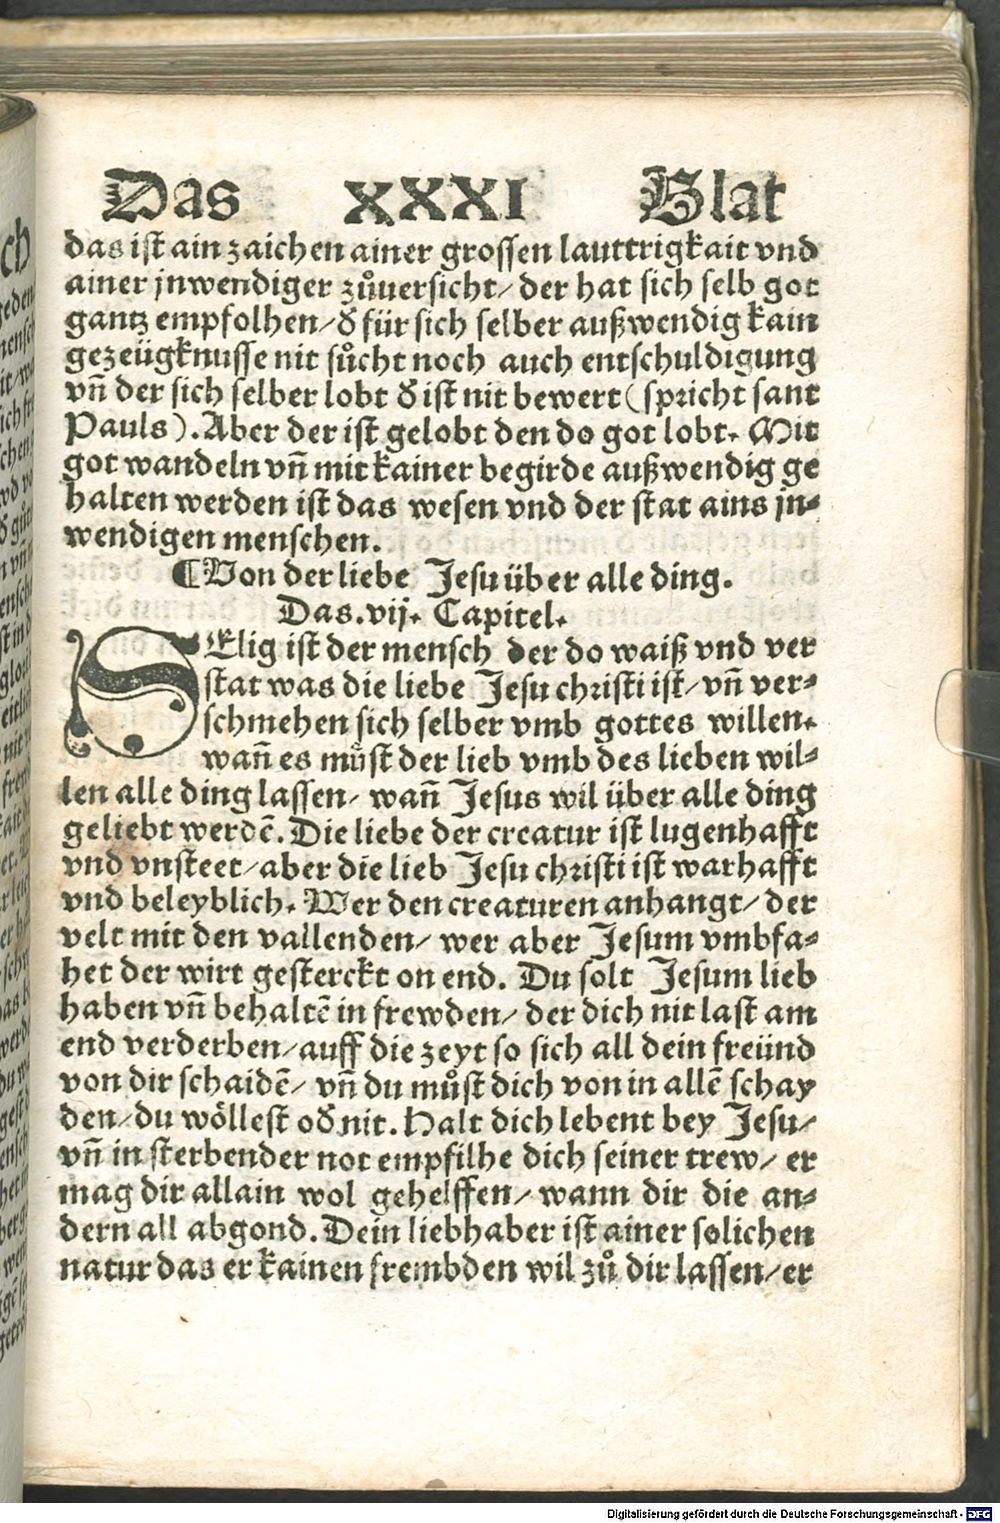 Das XXXI Blat
das ist ain zaichen ainer grossen lauttrigkait vnd
ainer jnwendiger zůuersicht/ der hat sich selb got
gantz empfolhen/ ð für sich selber außwendig kain
gezeügknusse nit sůcht noch auch entschuldigung
vñ der sich selber lobt ð ist nit bewert (spricht sant
Pauls). Aber der ist gelobt den do got lobt. Mit
got wandeln vñ mit kainer begirde außwendig ge
halten werden ist das wesen vnd der stat ains jn⸗
wendigen menschen.
¶ Von der liebe Jesu über alle ding.
Das .vij. Capitel.
SElig ist der mensch der do waiß vnd ver
stat was die liebe Jesu christi ist/ vñ ver⸗
schmehen sich selber vmb gottes willen.
wañ es můst der lieb vmb des lieben wil⸗
len alle ding lassen/ wañ Jesus wil über alle ding
geliebt werdē. Die liebe der creatur ist lugenhafft
vnd vnsteet/ aber die lieb Jesu christi ist warhafft
vnd beleyblich. Wer den creaturen anhangt/ der
velt mit den vallenden/ wer aber Jesum vmbfa⸗
het der wirt gesterckt on end. Du solt Jesum lieb
haben vñ behaltē in frewden/ der dich nit last am
end verderben/ auff die zeyt so sich all dein freünd
von dir schaidē/ vñ du můst dich von in allē schay
den/ du wöllest oð nit. Halt dich lebent bey Jesu/
vñ in sterbender not empfilhe dich seiner trew/ er
mag dir allain wol gehelffen/ wann dir die an⸗
dern all abgond. Dein liebhaber ist ainer solichen
natur das er kainen frembden wil zů dir lassen/ er
Digitalisierung gefördert durch die Deutsche Forschungsgemeinschaft - DFG